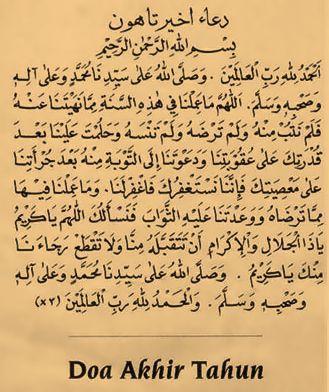 دعاء اخير تاهون
بِسْمِ اللهِ الرَّحْمٰنِ الرَّحِيْمِ
اَلْحَمْدُ لِلّٰهِ رَبِّ الْعَالَمِيْنَ . وَصَلَّى اللهُ عَلَى سَيِّدِنَا مُحَمَّدٍ وَعَلَى آلِهِ
وَصَحْبِهِ وَسَلَّمَ . اَللّٰهُمَّ مَا عَمِلْنَا فِي هٰذِهِ السَّنَةِ مِمَّا نَهَيْتَنَا عَنْهُ
فَلَمْ نَتُبْ مِنْهُ وَلَمْ تَرْضَهُ وَلَمْ تَنْسَهُ وَحَلِمْتَ عَلَيْنَا بَعْدَ
قُدْرَتِكَ عَلَى عُقُوْبَتِنَا وَدَعَوْتَنَا إِلَى التَّوْبَةِ مِنْهُ بَعْدَ جُرْأَتِنَا
عَلَى مَعْصِيَتِكَ فَإِنَّنَا نَسْتَغْفِرُكَ فَاغْفِرْ لَنَا . وَمَا عَمِلْنَا فِيْهَا
مِمَّا تَرْضَاهُ وَوَعَدْتَنَا عَلَيْهِ الثَّوَابَ فَنَسْأَلُكَ اللّٰهُمَّ يَا كَرِيْمُ
يَا ذَا الْجَلَالِ وَالْإِكْرَامِ أَنْ تَتَقَبَّلَهُ مِنَّا وَلَا تَقْطَعْ رَجَاءَنَا
مِنْكَ يَا كَرِيْمُ . وَصَلَّى اللهُ عَلَى سَيِّدِنَا مُحَمَّدٍ وَعَلَى آلِهِ
وَصَحْبِهِ وَسَلَّمَ . وَالْحَمْدُ لِلّٰهِ رَبِّ الْعَالَمِيْنَ (×٣)
Doa Akhir Tahun